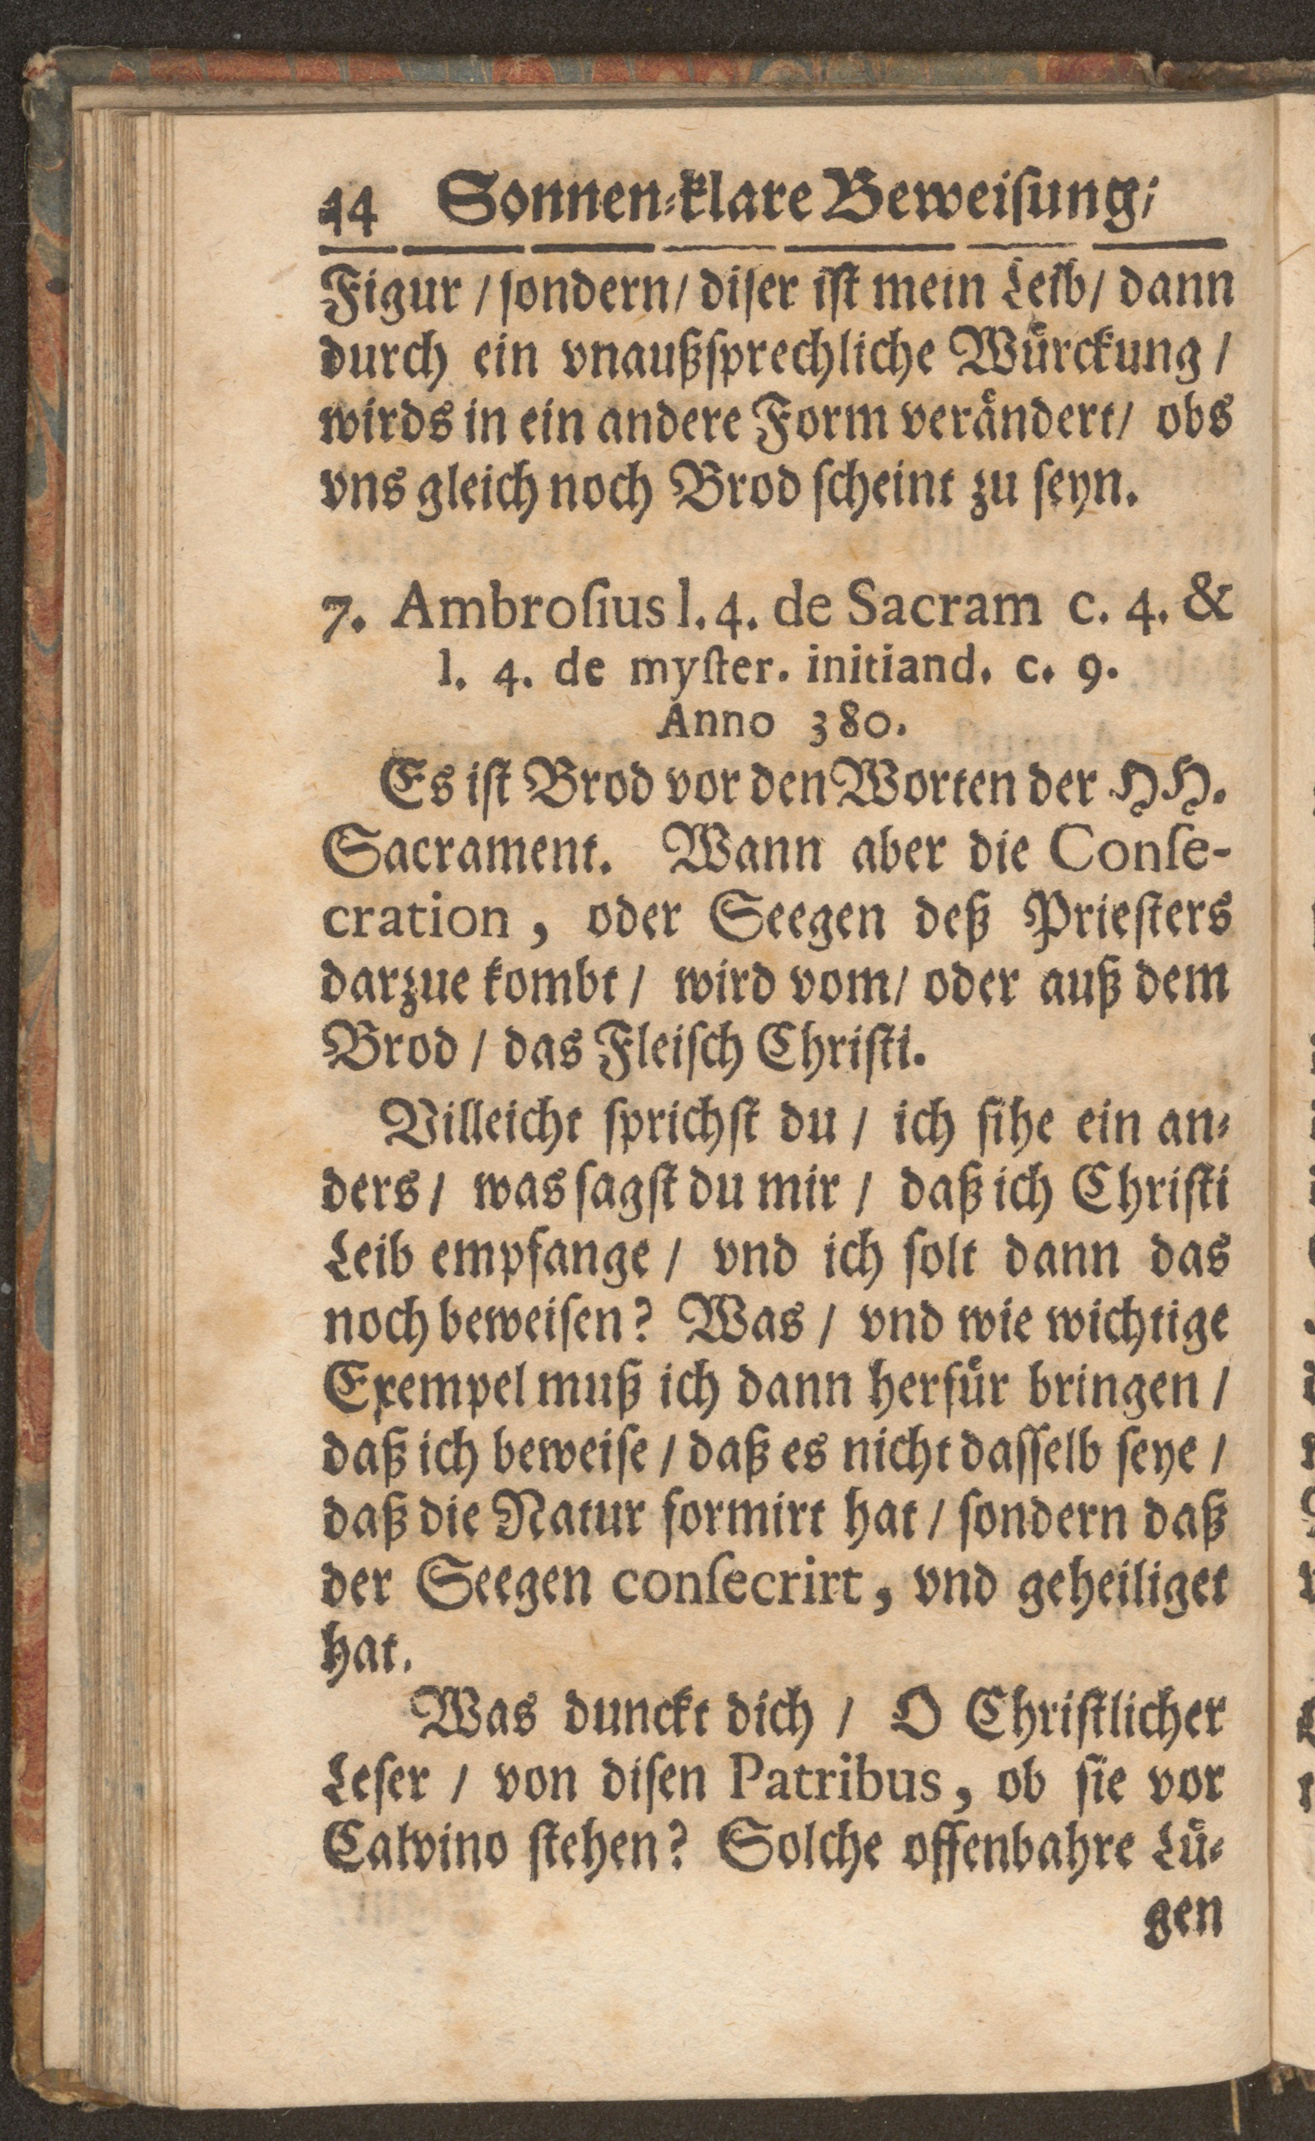 44 Sonnen⸗klare Beweiſung;
Figur / ſondern / diſer iſt mein Leib / dann
durch ein vnaußſprechliche Wuͤrckung /
wirds in ein andere Form veraͤndert / obs
vns gleich noch Brod ſcheint zu ſeyn.
7. Ambroſius l. 4. de Sacram c. 4. &
l. 4. de myſter. initiand. c. 9.
Anno 380.
Es iſt Brod vor den Worten der HH.
Sacrament. Wann aber die Conſe-
cration, oder Seegen deß Prieſters
darzue kombt / wird vom / oder auß dem
Brod / das Fleiſch Chriſti.
Villeicht ſprichſt du / ich ſihe ein an⸗
ders / was ſagſt du mir / daß ich Chriſti
Leib empfange / vnd ich ſolt dann das
noch beweiſen? Was / vnd wie wichtige
Exempel muß ich dann herfuͤr bringen /
daß ich beweiſe / daß es nicht daſſelb ſeye /
daß die Natur formirt hat / ſondern daß
der Seegen conſecrirt, vnd geheiliget
hat.
Was dunckt dich / O Chriſtlicher
Leſer / von diſen Patribus, ob ſie vor
Calvino ſtehen? Solche offenbahre Luͤ⸗
gen